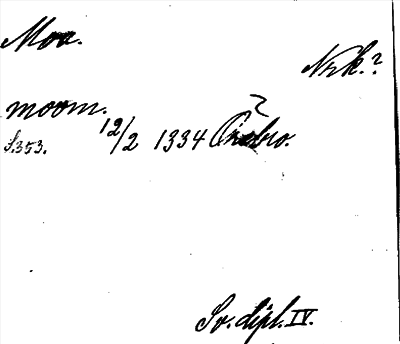 Moa.
Nrk.?
moom.
S.353. 12/2 1334 Örebro.
Sv. dipl. IV.